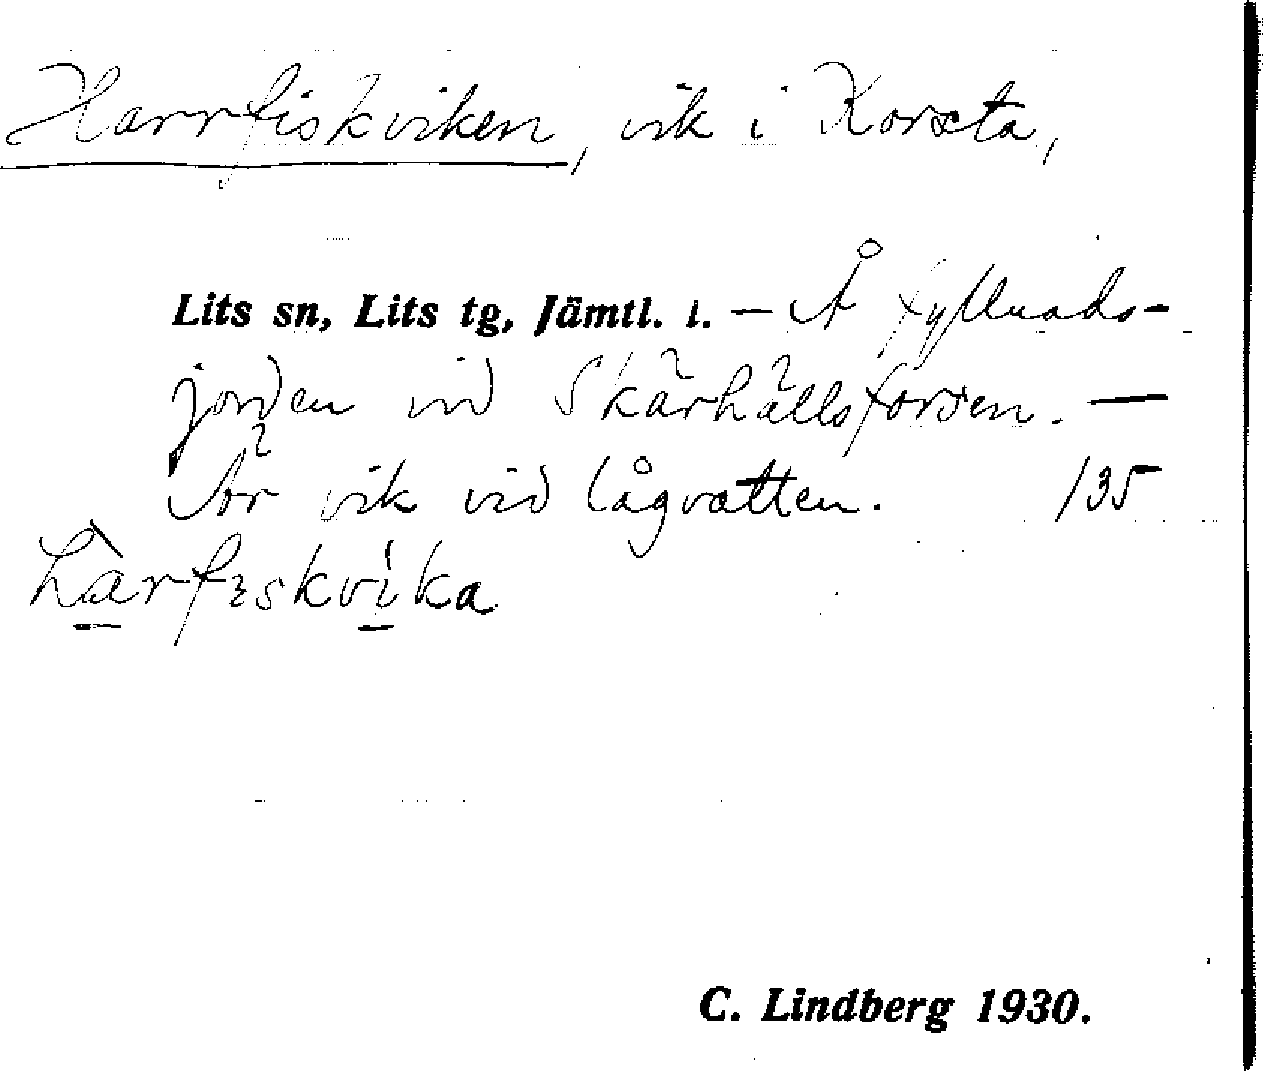 Harrfiskviken, vik i Korsta,
Lits sn, Lits tg, Jämtl. l. — Å fyllnads-
jorden vid Skärhällsforsen. —
Tör vik vid lågvatten. 135
hàrfıskvíka
C. Lindberg 1930.